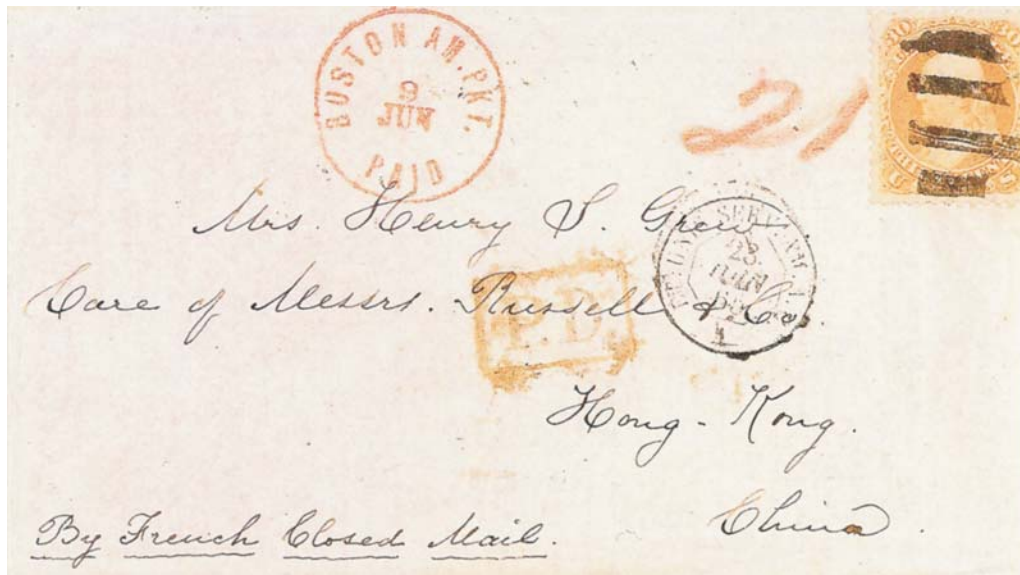 BOSTON AM. PKT.
9
JUN
PAID
21
30
Mrs. Henry S. Grew.
Care of Messrs. Russell & Co.
P.D.
23
JUIN
Hong-Kong.
China.
By French Closed Mail.